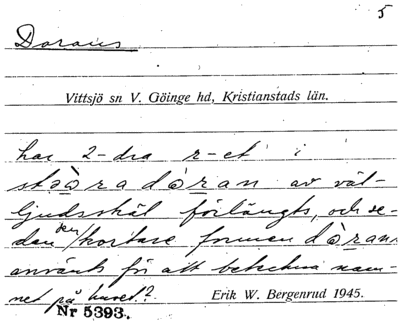 5
Doraus
Vittsjö sn V. Göinge hd, Kristianstads län.
har 2-dra r-et i
av väl-
ljudsskäl förlängts, och se-
dan den/kortare formen dò̱ran
använts för att beteckna nam-
net på huset?
Erik W. Bergenrud 1945.
Nr 5393.